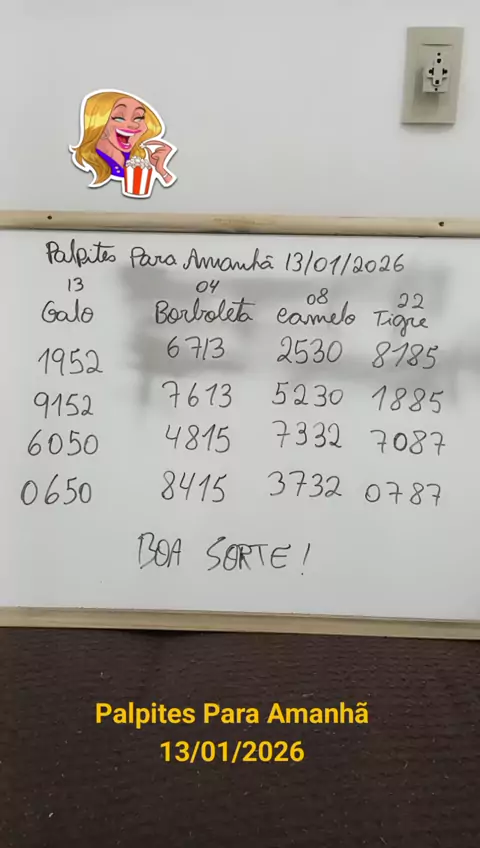 Palpites Para Amanhã 13/01/2026
13 04 08 22
Galo Borboleta Camelo Tigre
1952 6713 2530 8185
9152 7613 5230 1885
6050 4815 7332 7087
0650 8415 3732 0787
BOA SORTE!
Palpites Para Amanhã
13/01/2026